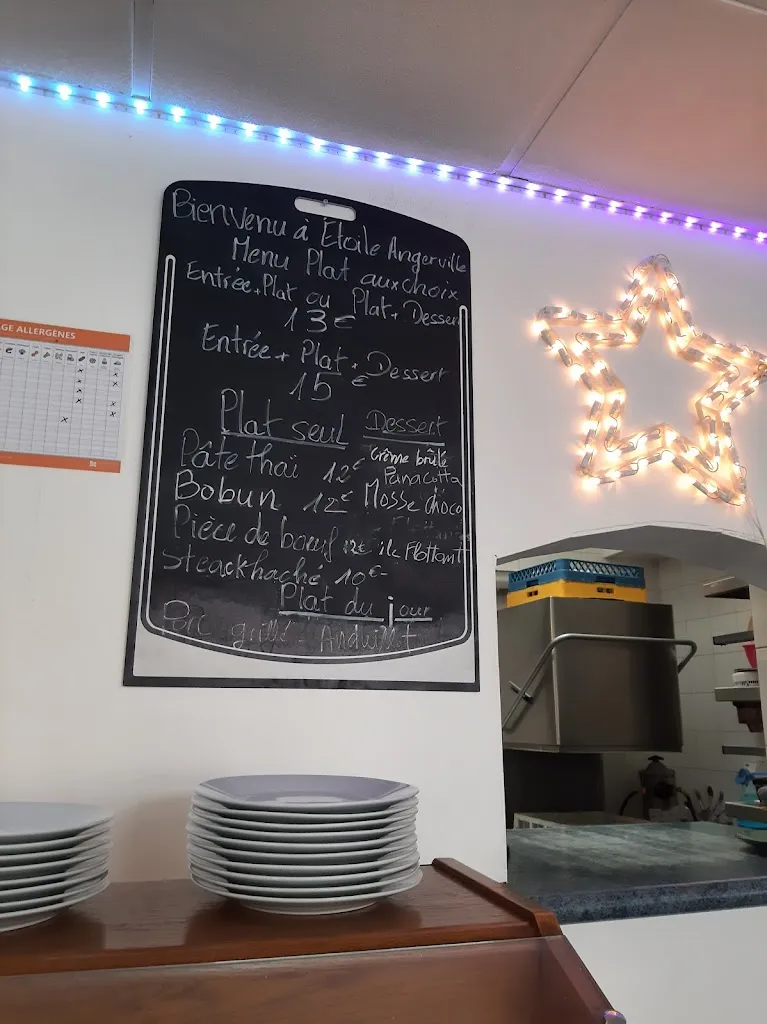 Bienvenu à Etoile Angerville
Menu Plat aux choix
Entrée + Plat ou Plat + Dessert
13€
Entrée + Plat + Dessert
15€
Plat seul
Pâte thaï 12€
Bobun 12€
Pièce de bœuf 12€
Steack haché 10€
Dessert
Crème brûlé
Panacotta
Mosse choco
ile Flottant
Plat du jour
Porc grillé - Anduillet
GE ALLERGÈNES